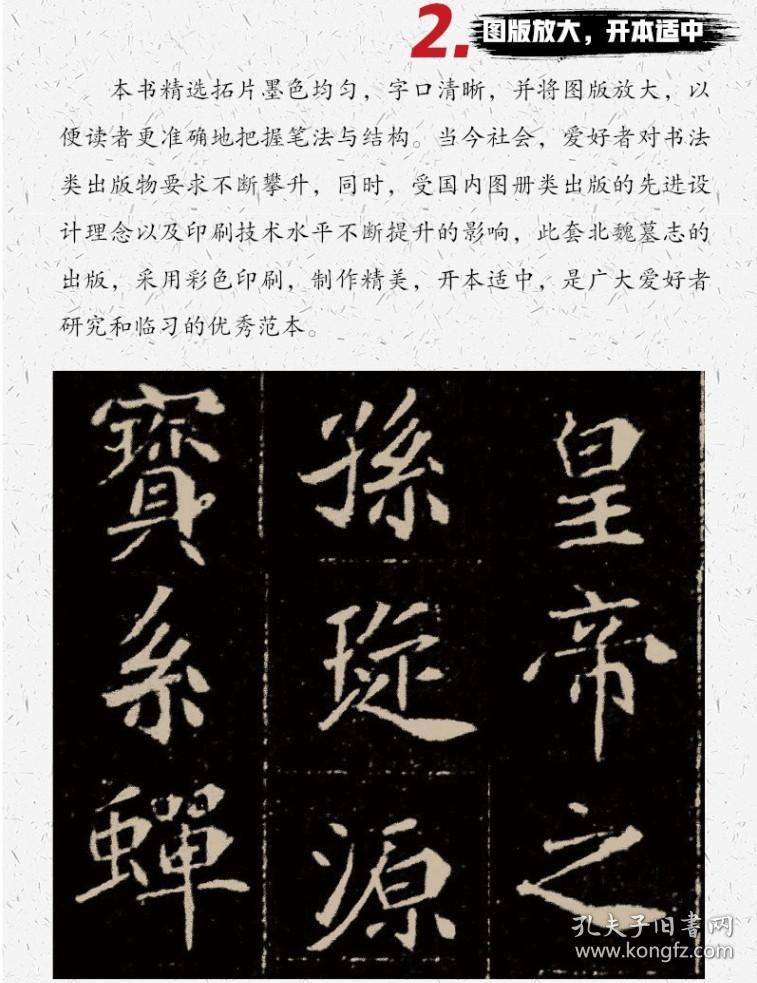 2.
图版放大，开本适中
本书精选拓片墨色均匀，字口清晰，并将图版放大，以
便读者更准确地把握笔法与结构。当今社会，爱好者对书法
类出版物要求不断攀升，同时，受国内图册类出版的先进设
计理念以及印刷技术水平不断提升的影响，此套北魏墓志的
出版，采用彩色印刷，制作精美，开本适中，是广大爱好者
研究和临习的优秀范本。
皇帝之
孫琁源
寶系蟬
孔夫子旧書网
www.kongfz.com